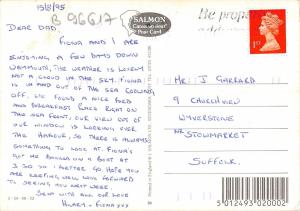 15/8/95
B 96617
SALMON
Cameracolour
Post Card
Be prepa
1ST
DEAR DAD,
FIONA AND I ARE
ENJOYING A FEW DAYS DOWN
WEYMOUTH, THE WEATHER IS LOVELY
NOT A CLOUD IN THE SKY. FIONA
IS IN AND OUT OF THE SEA COOLING
OFF. WE FOUND A NICE BED
AND BREAKFAST PLACE RIGHT ON
THE SEA FRONT. OUR VIEW OUT OF
OUR WINDOW IS LOOKING OVER
THE HARBOUR, SO THERE IS ALWAYS
SOMETHING TO LOOK AT. FIONA'S
GOT ME GOING ON A BOAT AT
3 SO SO I BETTER GO. HOPE YOU
ARE KEEPING WELL LOOK FORWARD
TO SEEING YOU NEXT WEEK.
SEND WITH ALL OUR LOVE
HILARY & FIONA XXX
MR J GARRARD
9 CHURCHVIEW
WYVERSTONE
NR STOWMARKET
SUFFOLK.
5 012493 020002